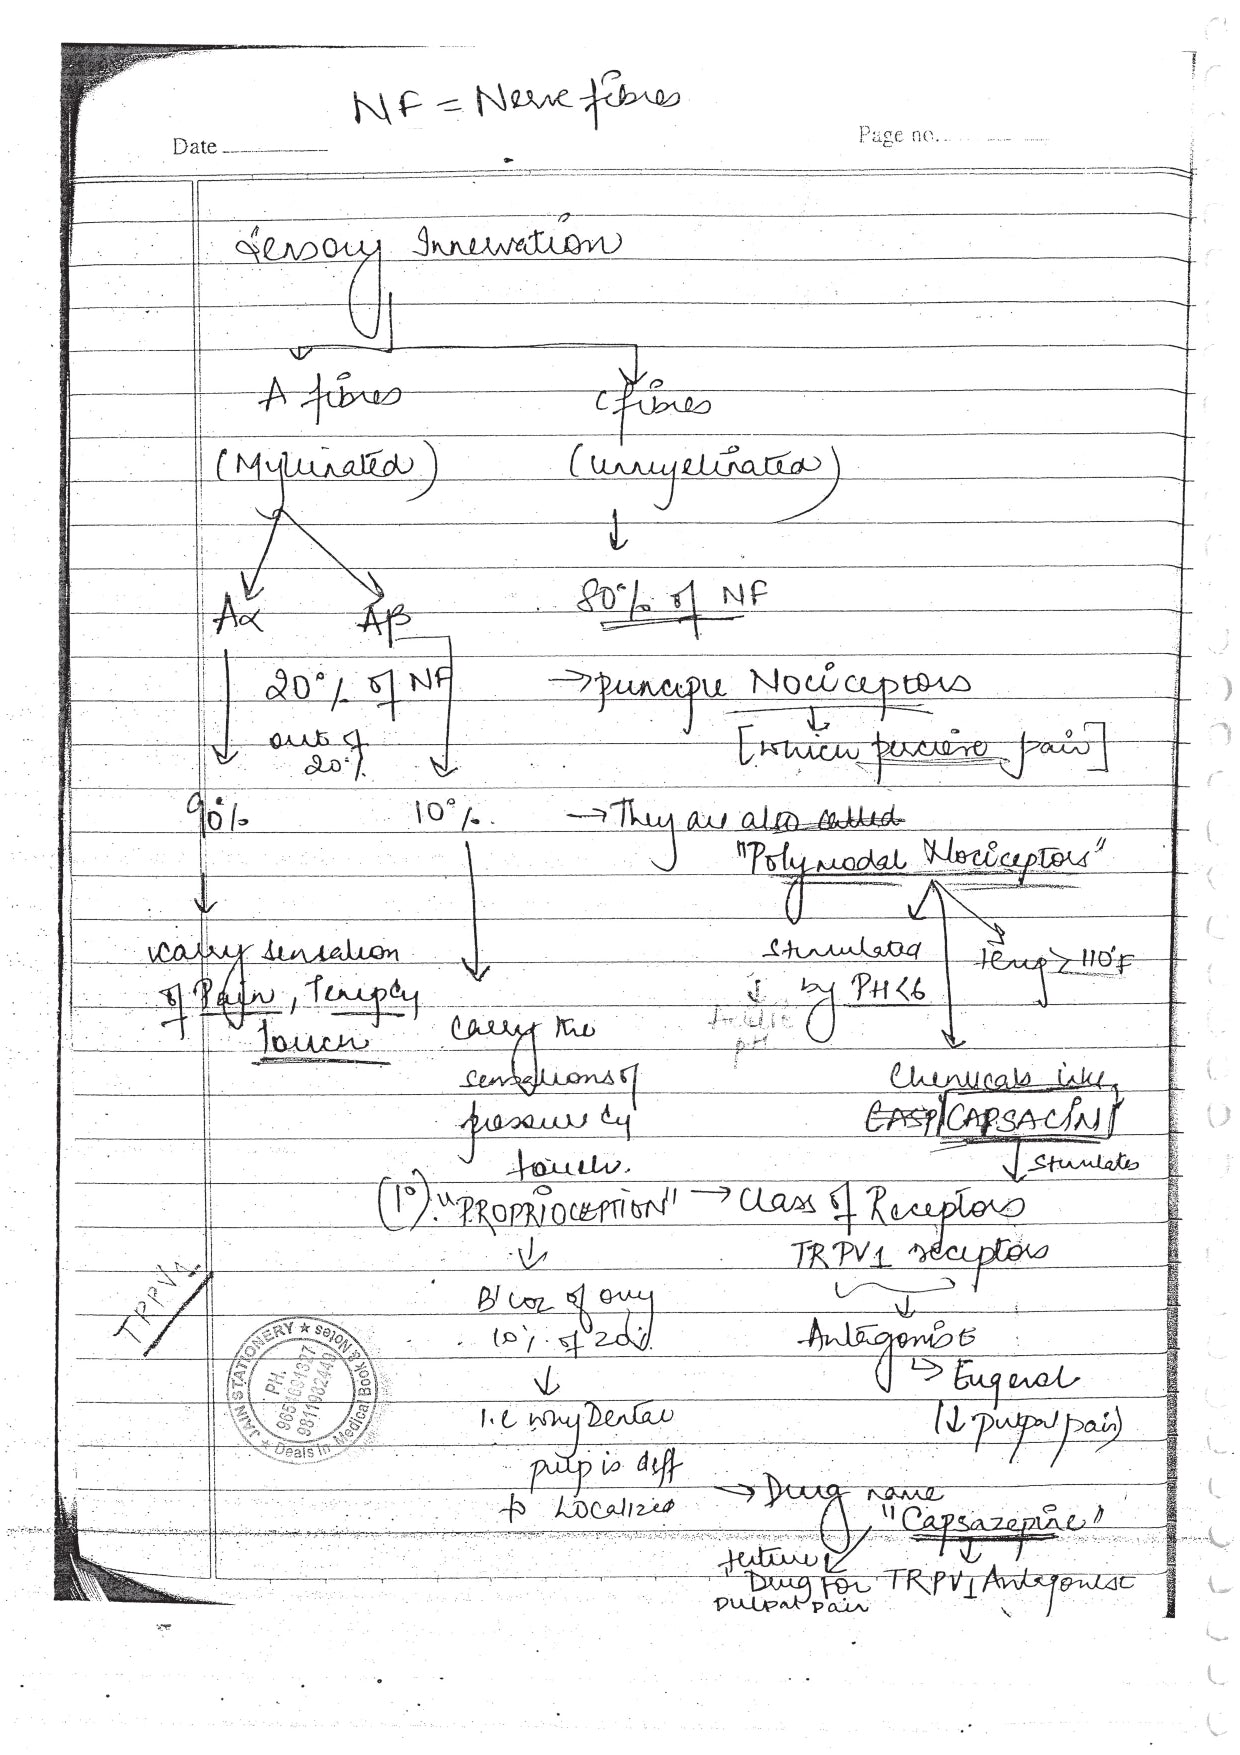 NF = Nerve fibres
Date
Page no.
Sensory Innervation
A fibres
C fibres
(Mylinated)
(unmyelinated)
Aα
Aβ
80% of NF
20% of NF
→ principle Nociceptors
out of
20%
[which percieve pain]
90%
10%.
→ They are also called
"Polymodal Nociceptors"
carry sensation
of Pain, Temp &
Touch
stimulated
by PH<6
Temp > 110°F
pH
carry the
sensations of
pressure &
touch.
Chemicals like
CASP CAPSACIN
stimulates
(1°). "PROPRIOCEPTION"
→ Class of Receptors
TRPV1 receptors
B'coz of only
10% of 20%
Antagonist
Eugenol
(↓ pulpal pain)
i.e why Dental
pulp is diff
to Localized
→ Drug name
"Capsazepine"
future
Drug for
pulpal pain
TRPV1 Antagonist
TRPV1
JAIN STATIONERY ★ Book & Notes
PH.
9811982449
★ Deals in Medical